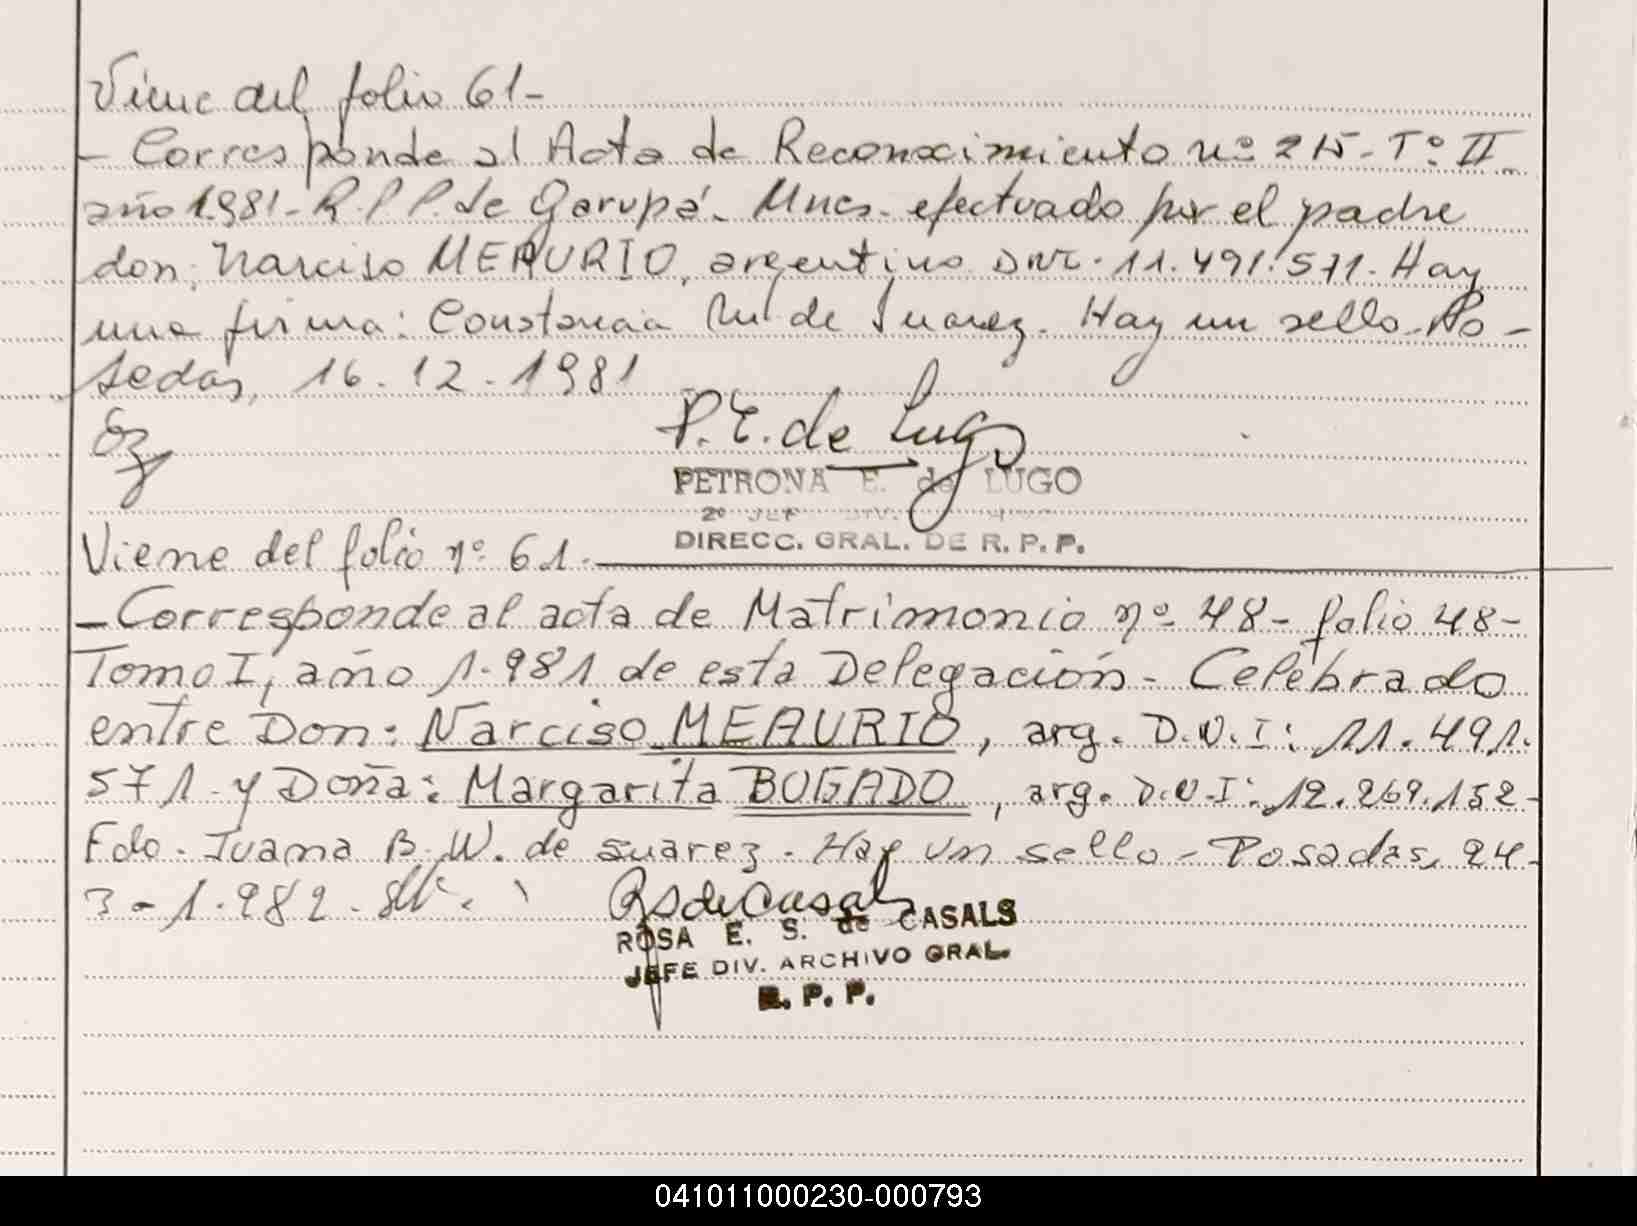 Viene del folio 61-
- Corresponde al Acta de Reconocimiento nº 215- Tº II
año 1.981- R.P.P. de Garupá- Mnes. efectuado por el padre
don: Narciso MEAURIO, argentino DNI. 11.491.571. Hay
una firma: Constancia de Suarez. Hay un sello- Po-
sadas, 16.12.1981
P.E. de Lugo
PETRONA E. de LUGO
2º JEF DIV.
DIRECC. GRAL. DE R.P.P.
Viene del folio nº 61.-
- Corresponde al acta de Matrimonio nº 48- folio 48-
Tomo I, año 1.981 de esta Delegación- Celebrado
entre Don: Narciso MEAURIO, arg. D.N.I: 11.491.
571- y Doña: Margarita BOGADO, arg. D.N.I: 12.269.152-
Fdo. Juana B. W. de Suarez- Hay un sello- Posadas, 24-
3-1.982.
RS de Casals
ROSA E. S. de CASALS
JEFE DIV. ARCHIVO GRAL.
R. P. P.
041011000230-000793